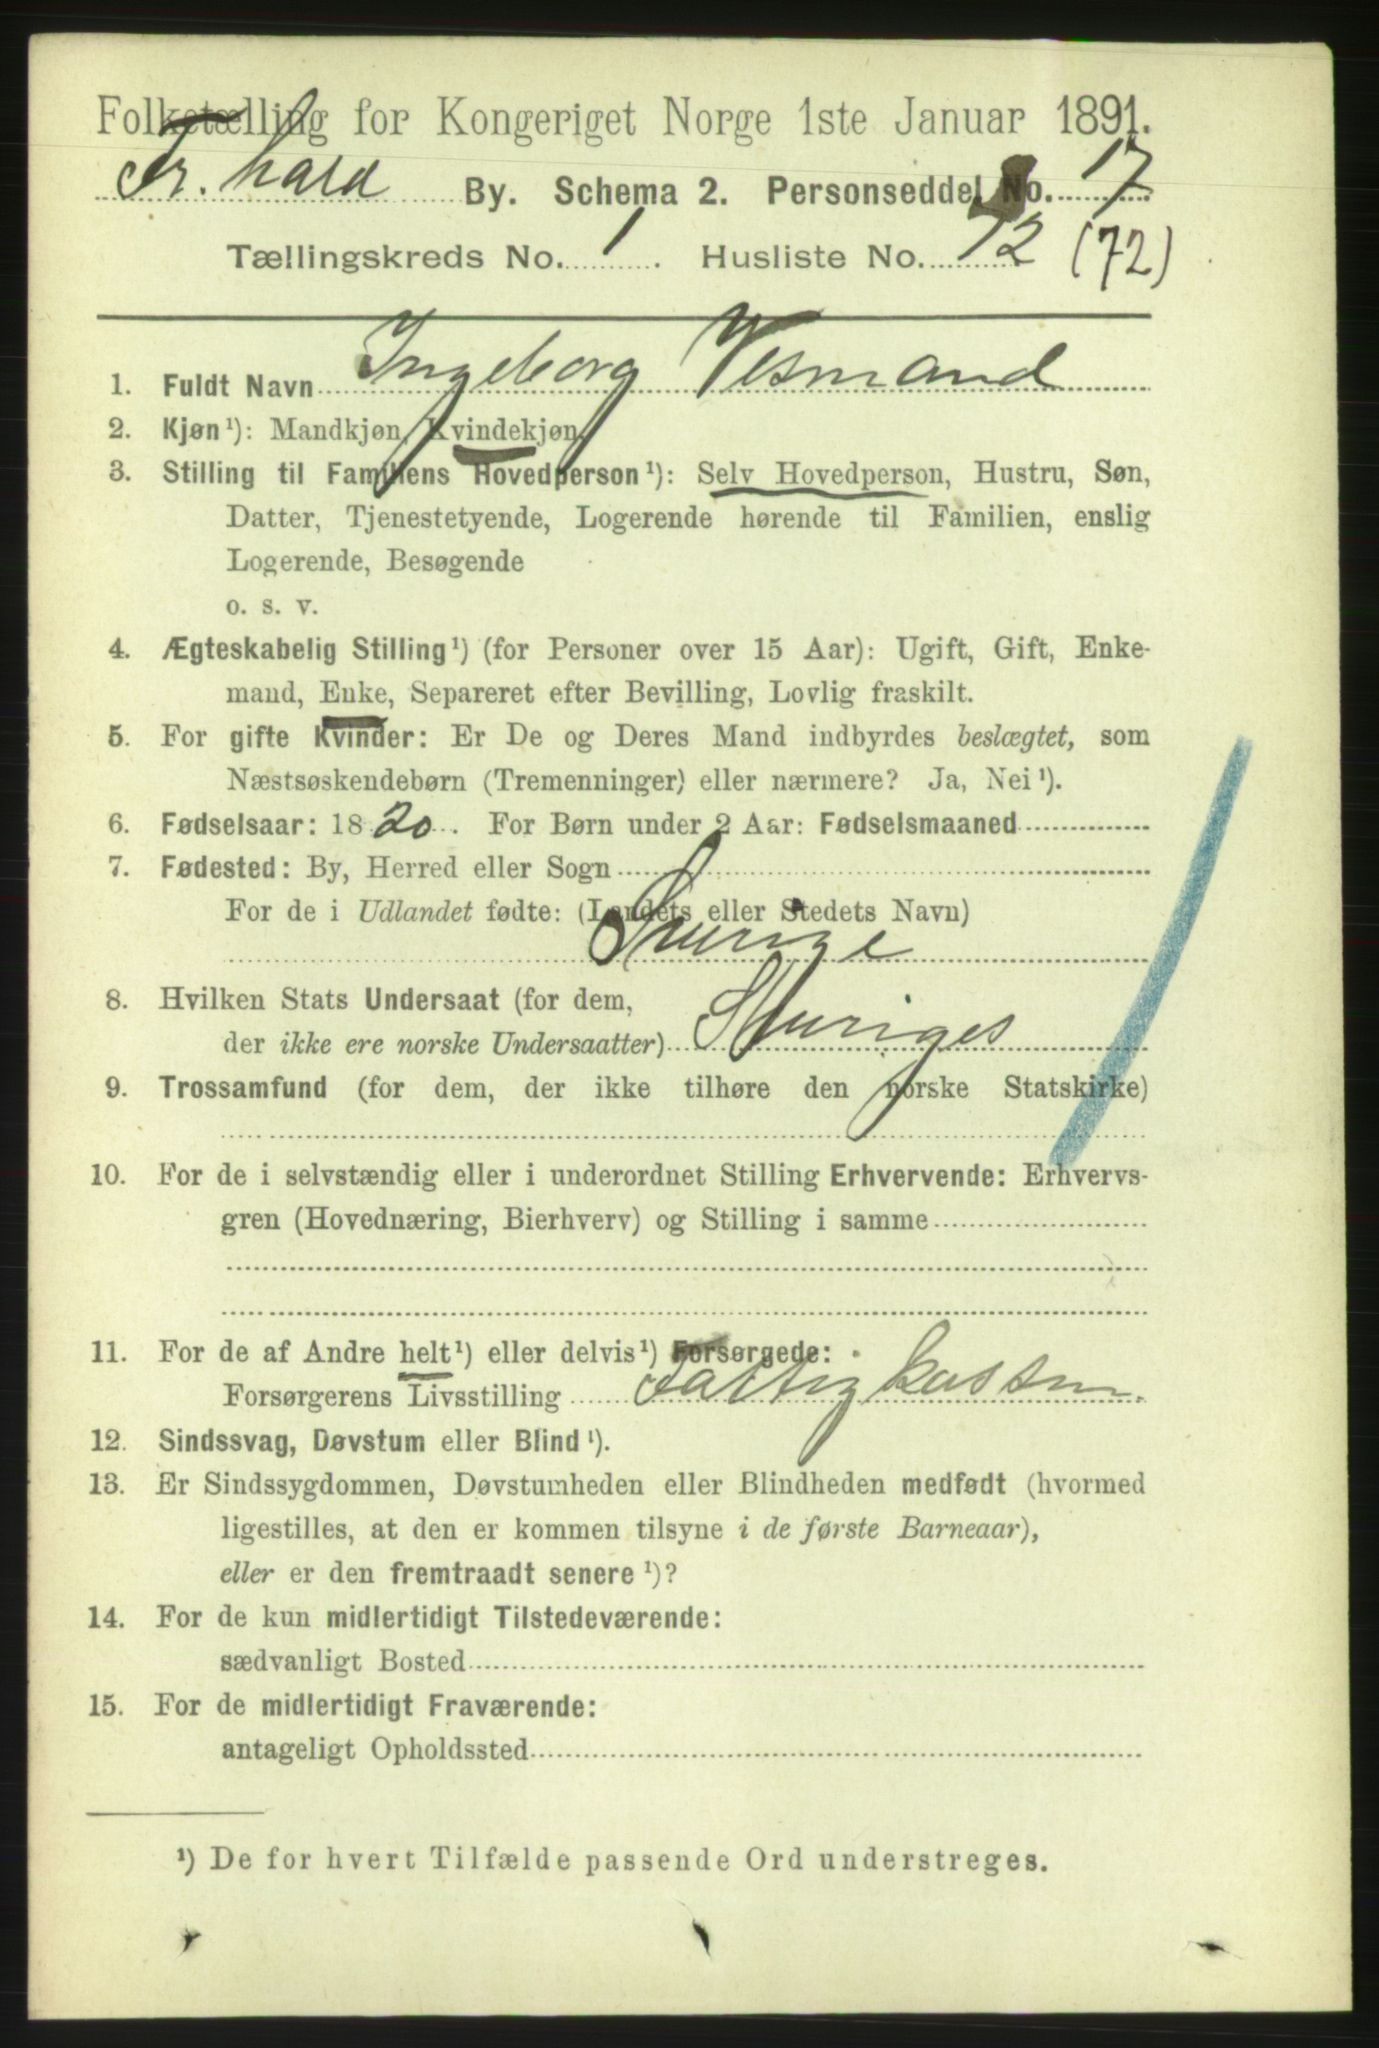 Folketælling for Kongeriget Norge 1ste Januar 1891.
Fr. hald By. Schema 2. Personseddel No. 17
Tællingskreds No. 1. Husliste No. 72 (72)
1. Fuldt Navn Ingeborg Vesmand
2. Kjøn¹): Mandkjøn, Kvindekjøn.
3. Stilling til Familiens Hovedperson¹): Selv Hovedperson, Hustru, Søn,
Datter, Tjenestetyende, Logerende hørende til Familien, enslig
Logerende, Besøgende
o. s. v.
4. Ægteskabelig Stilling¹) (for Personer over 15 Aar): Ugift, Gift, Enke-
mand, Enke, Separeret efter Bevilling, Lovlig fraskilt.
5. For gifte Kvinder: Er De og Deres Mand indbyrdes beslægtet, som
Næstsøskendebørn (Tremenninger) eller nærmere? Ja, Nei¹).
6. Fødselsaar: 1820. For Børn under 2 Aar: Fødselsmaaned
7. Fødested: By, Herred eller Sogn
For de i Udlandet fødte: (Landets eller Stedets Navn)
Sverige
8. Hvilken Stats Undersaat (for dem,
der ikke ere norske Undersaatter) Sveriges
9. Trossamfund (for dem, der ikke tilhøre den norske Statskirke)
10. For de i selvstændig eller i underordnet Stilling Erhvervende: Erhvervs-
gren (Hovednæring, Bierhverv) og Stilling i samme
11. For de af Andre helt¹) eller delvis¹) Forsørgede:
Forsørgerens Livsstilling Fattigkassen.
12. Sindssvag, Døvstum eller Blind¹).
13. Er Sindssygdommen, Døvstumheden eller Blindheden medfødt (hvormed
ligestilles, at den er kommen tilsyne i de første Barneaar),
eller er den fremtraadt senere¹)?
14. For de kun midlertidigt Tilstedeværende:
sædvanligt Bosted
15. For de midlertidigt Fraværende:
antageligt Opholdssted
¹) De for hvert Tilfælde passende Ord understreges.